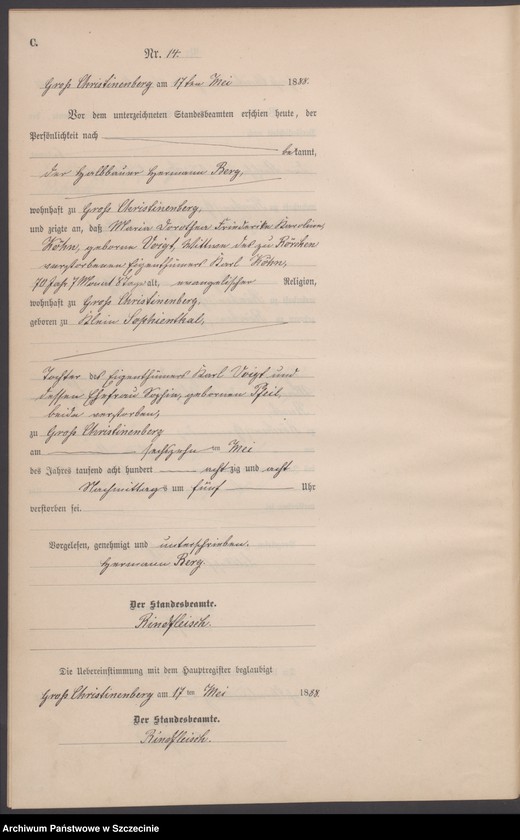 C.
Nr. 14.
Groß Christinenberg am 17ten Mai 1888.
Vor dem unterzeichneten Standesbeamten erschien heute, der
Persönlichkeit nach
bekannt,
der Halbbauer Hermann Berg,
wohnhaft zu Groß Christinenberg,
und zeigte an, daß Maria Dorothea Friederike Karoline
Köhn, geborne Voigt, Wittwe des zu Rörchen
verstorbenen Eigenthümers Karl Köhn,
70 Jahr 7 Monat 8 Tage alt, evangelischer Religion,
wohnhaft zu Groß Christinenberg,
geboren zu Klein Sophienthal,
Tochter des Eigenthümers Karl Voigt und
dessen Ehefrau Sophie, gebornen Pfeil,
beide verstorben,
zu Groß Christinenberg
am sechszehn ten Mai
des Jahres tausend acht hundert acht zig und acht
Nachmittags um fünf Uhr
verstorben sei.
Vorgelesen, genehmigt und unterschrieben.
Hermann Berg.
Der Standesbeamte.
Rindfleisch.
Die Uebereinstimmung mit dem Hauptregister beglaubigt
Groß Christinenberg am 17 ten Mai 1888.
Der Standesbeamte.
Rindfleisch.
Archiwum Państwowe w Szczecinie